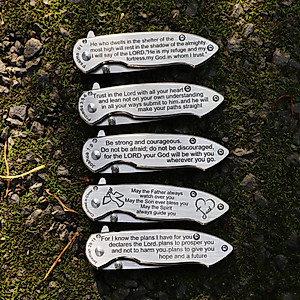 He who dwells in the shelter of the
most high will rest in the shadow of the almighty
I will say of the LORD,"He is my refuge and my
fortress,my God in whom I trust."
Trust in the Lord with all your heart
and lean not on your own understanding
in all your ways submit to him,and he will
make your paths straight
Be strong and courageous.
Do not be afraid; do not be discouraged,
for the LORD your God will be with you
wherever you go.
May the Father always
watch over you
May the Son ever bless you
May the Spirit
always guide you
For I know the plans I have for you
declares the Lord,plans to prosper you
and not to harm you,plans to give you
hope and a future